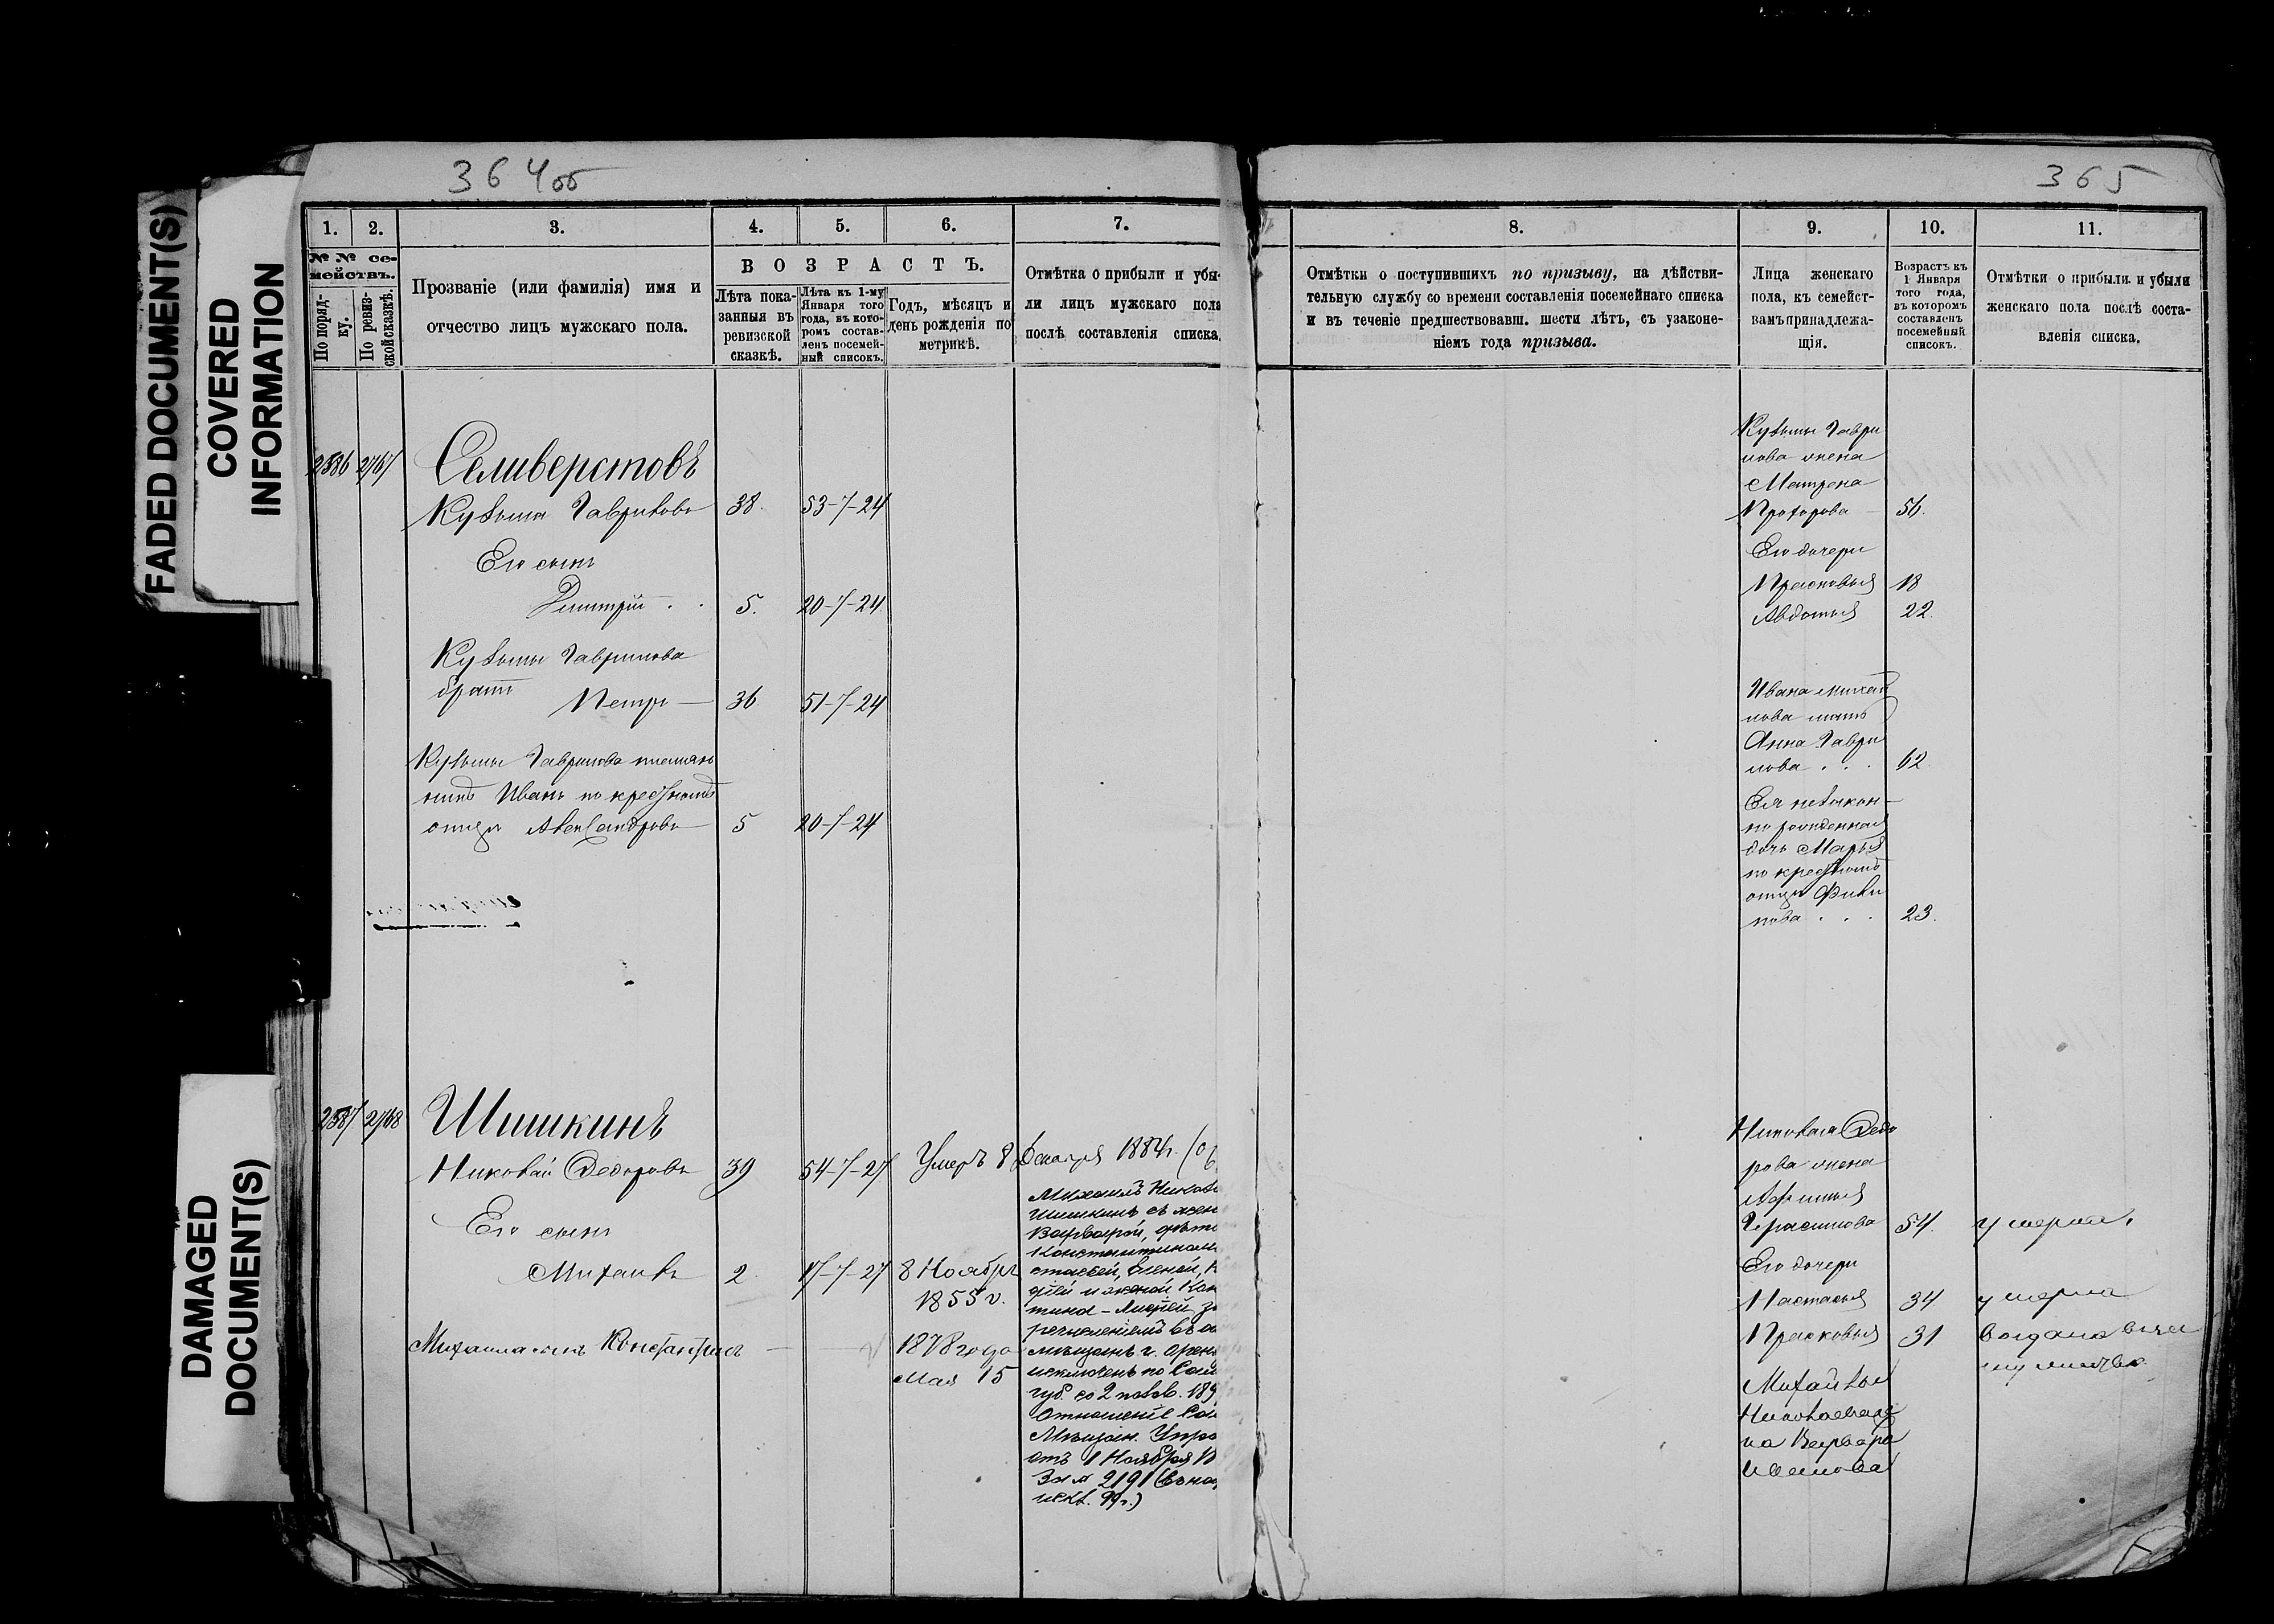 FADED DOCUMENT(S)
COVERED
INFORMATION
DAMAGED
DOCUMENT(S)
364об
1.
2.
3.
4.
5.
6.
7.
№ № се-
мействъ.
По поряд-
ку.
По ревиз-
ской сказкѣ.
Прозваніе (или фамилія) имя и
отчество лицъ мужскаго пола.
ВОЗРАСТЪ.
Лѣта пока-
занныя въ
ревизской
сказкѣ.
Лѣта къ 1-му
Января того
года, въ кото-
ромъ состав-
ленъ посемей-
ный списокъ.
Годъ, мѣсяцъ и
день рожденія по
метрикѣ.
Отмѣтка о прибыли и убы-
ли лицъ мужскаго пола
послѣ составленія списка.
2586 2767 Селиверстовъ
Кузьма Гавриловъ 38. 53-7-24
Его сынъ
Дмитрій 5. 20-7-24
Кузьмы Гаврилова
братъ Петръ 36. 51-7-24
Кузьмы Гаврилова племян
никъ Иванъ по крестному
отцу Александровъ 5 20-7-24
2587 2768 Шишкинъ
Николай Федоровъ 39 54-7-27 Умеръ 8 Декабря 1884г.
Его сынъ
Михаилъ 2 17-7-27 8 Ноября
1855 г.
Михаила сынъ Константинъ 1878 года
Мая 15
Михаилъ Никола
Шишкинъ съ жен
Варварой, дѣтьми
Константиномъ
тиной
речисленіемъ въ
мѣщане г. Орен
исключенъ по Сам
губ. со 2 полов. 189
Отношеніе Сам
Мѣщан. Упра
отъ 1 Ноября 18
За № 2191
искл. 99г.)
365
8.
9.
10.
11.
Отмѣтки о поступившихъ по призыву, на дѣйстви-
тельную службу со времени составленія посемейнаго списка
и въ теченіе предшествовавш. шести лѣтъ, съ узаконе-
ніемъ года призыва.
Лица женскаго
пола, къ семейст-
вамъ принадлежа-
щія.
Возрастъ къ
1 Января
того года,
въ которомъ
составленъ
посемейный
списокъ.
Отмѣтки о прибыли и убыли
женскаго пола послѣ соста-
вленія списка.
Кузьмы Гаври
лова жена
Матрена
Прохорова 56.
Его дочери
Прасковья 18
Авдотья 22.
Ивана Михай
лова мать
Анна Гаври
лова 62
Ея незакон-
но рожденная
дочь Марья
по крестному
отцу Фили
пова 23.
Николая Федо
рова жена
Афимья
Герасимова 54. умерла.
Его дочери
Настасья 34 умерла
Прасковья 31
Михайлы
Николаева же
на Варвара
Иванова